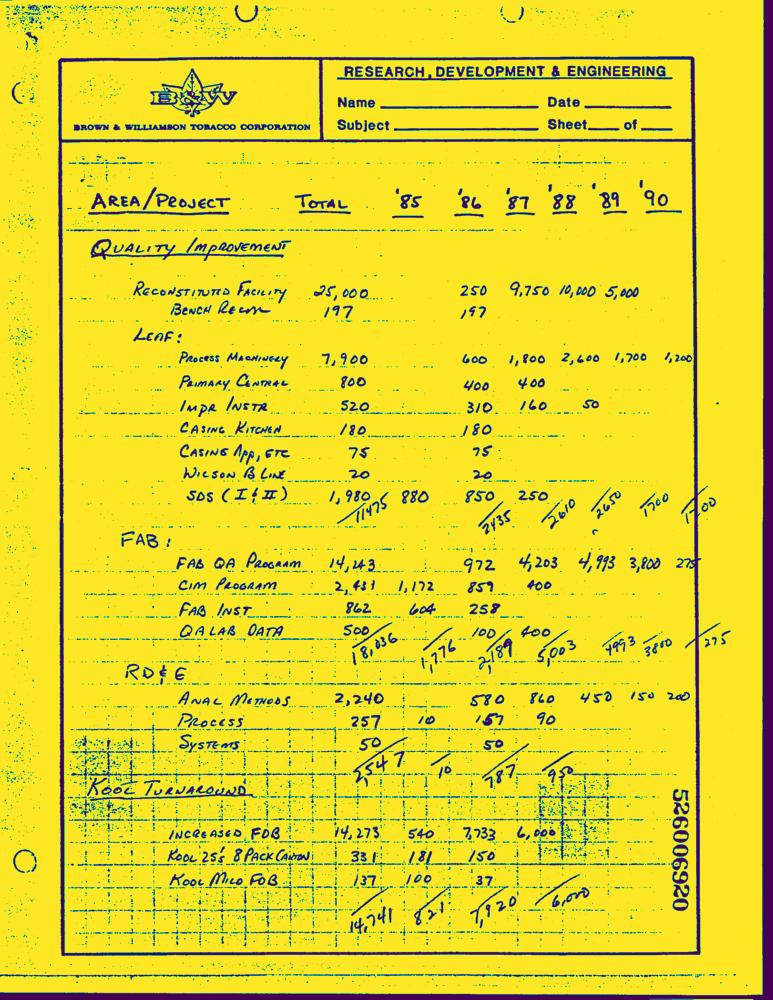 RESEARCH, DEVELOPMENT & ENGINEERING
B&W
Name Date
BROWN & WILLIAMSON TOBACCO CORPORATION
Subject Sheet of
AREA/PROJECT TOTAL '85 '86 '87 '88 '89 '90
QUALITY IMPROVEMENT
RECONSTITUTED FACILITY 25,000 250 9,750 10,000 5,000
BENCH RECON 197 197
LEAF:
PROCESS MACHINERY 7,900 600 1,800 2,600 1,700 1,200
PRIMARY CENTRAL 800 400 400
IMPR INSTR 520 310 160 50
CASING KITCHEN 180 180
CASING APP, ETC 75 75
WILSON B LINE 20 20
SDS (I & II) 1,980 880 850 250
11475 2435 2610 2650 1700 1200
FAB:
FAB QA PROGRAM 14,243 972 4,203 4,993 3,800 275
CIM PROGRAM 2,431 1,172 859 400
FAB INST 862 604 258
QA LAB DATA 500 100 400
18,036 1,776 2,189 5,003 4993 3800 275
RD & E
ANAL METHODS 2,240 580 860 450 150 200
PROCESS 257 10 157 90
SYSTEMS 50 50
2,547 10 787 950
KOOL TURNAROUND
INCREASED FOB 14,273 540 7,733 6,000
KOOL 25's 8 PACK CARTON 331 181 150
KOOL MILD FOB 137 100 37
14,741 821 7,920 6,000
526006920